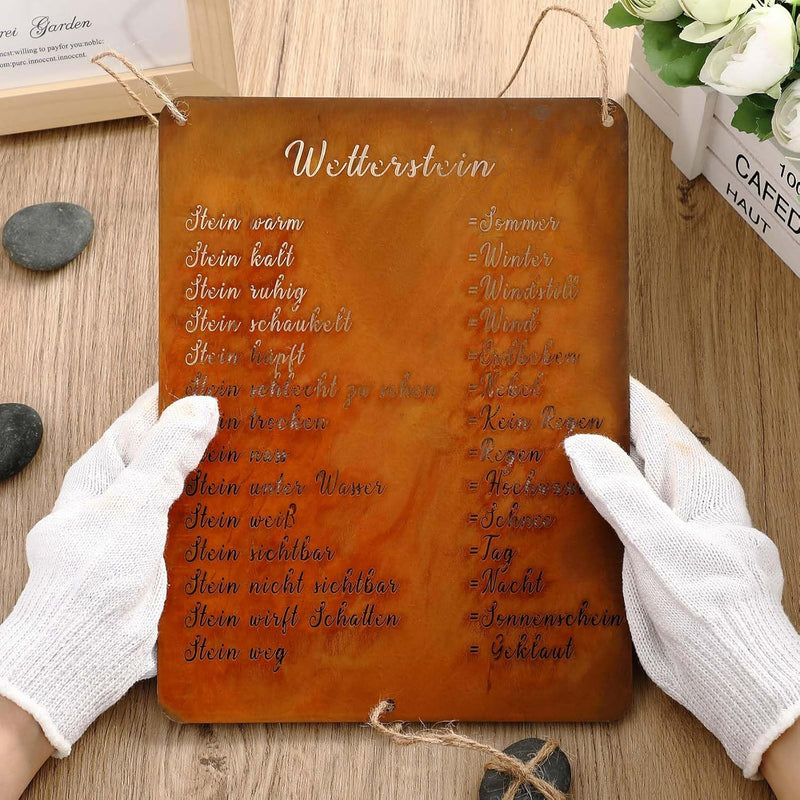 rei Garden
est:willing to payfor you:noble:
om:pure.innocent,innocent.
100
CAFED
HAUT
Wetterstein
Stein warm =Sommer
Stein kalt =Winter
Stein ruhig =Windstill
Stein schaukelt =Wind
Stein hüpft =Erdbeben
Stein schlecht zu sehen =Nebel
Stein trocken =Kein Regen
Stein nass =Regen
Stein unter Wasser =Hochwasse
Stein weiß =Schnee
Stein sichtbar =Tag
Stein nicht sichtbar =Nacht
Stein wirft Schatten =Sonnenschein
Stein weg = Geklaut